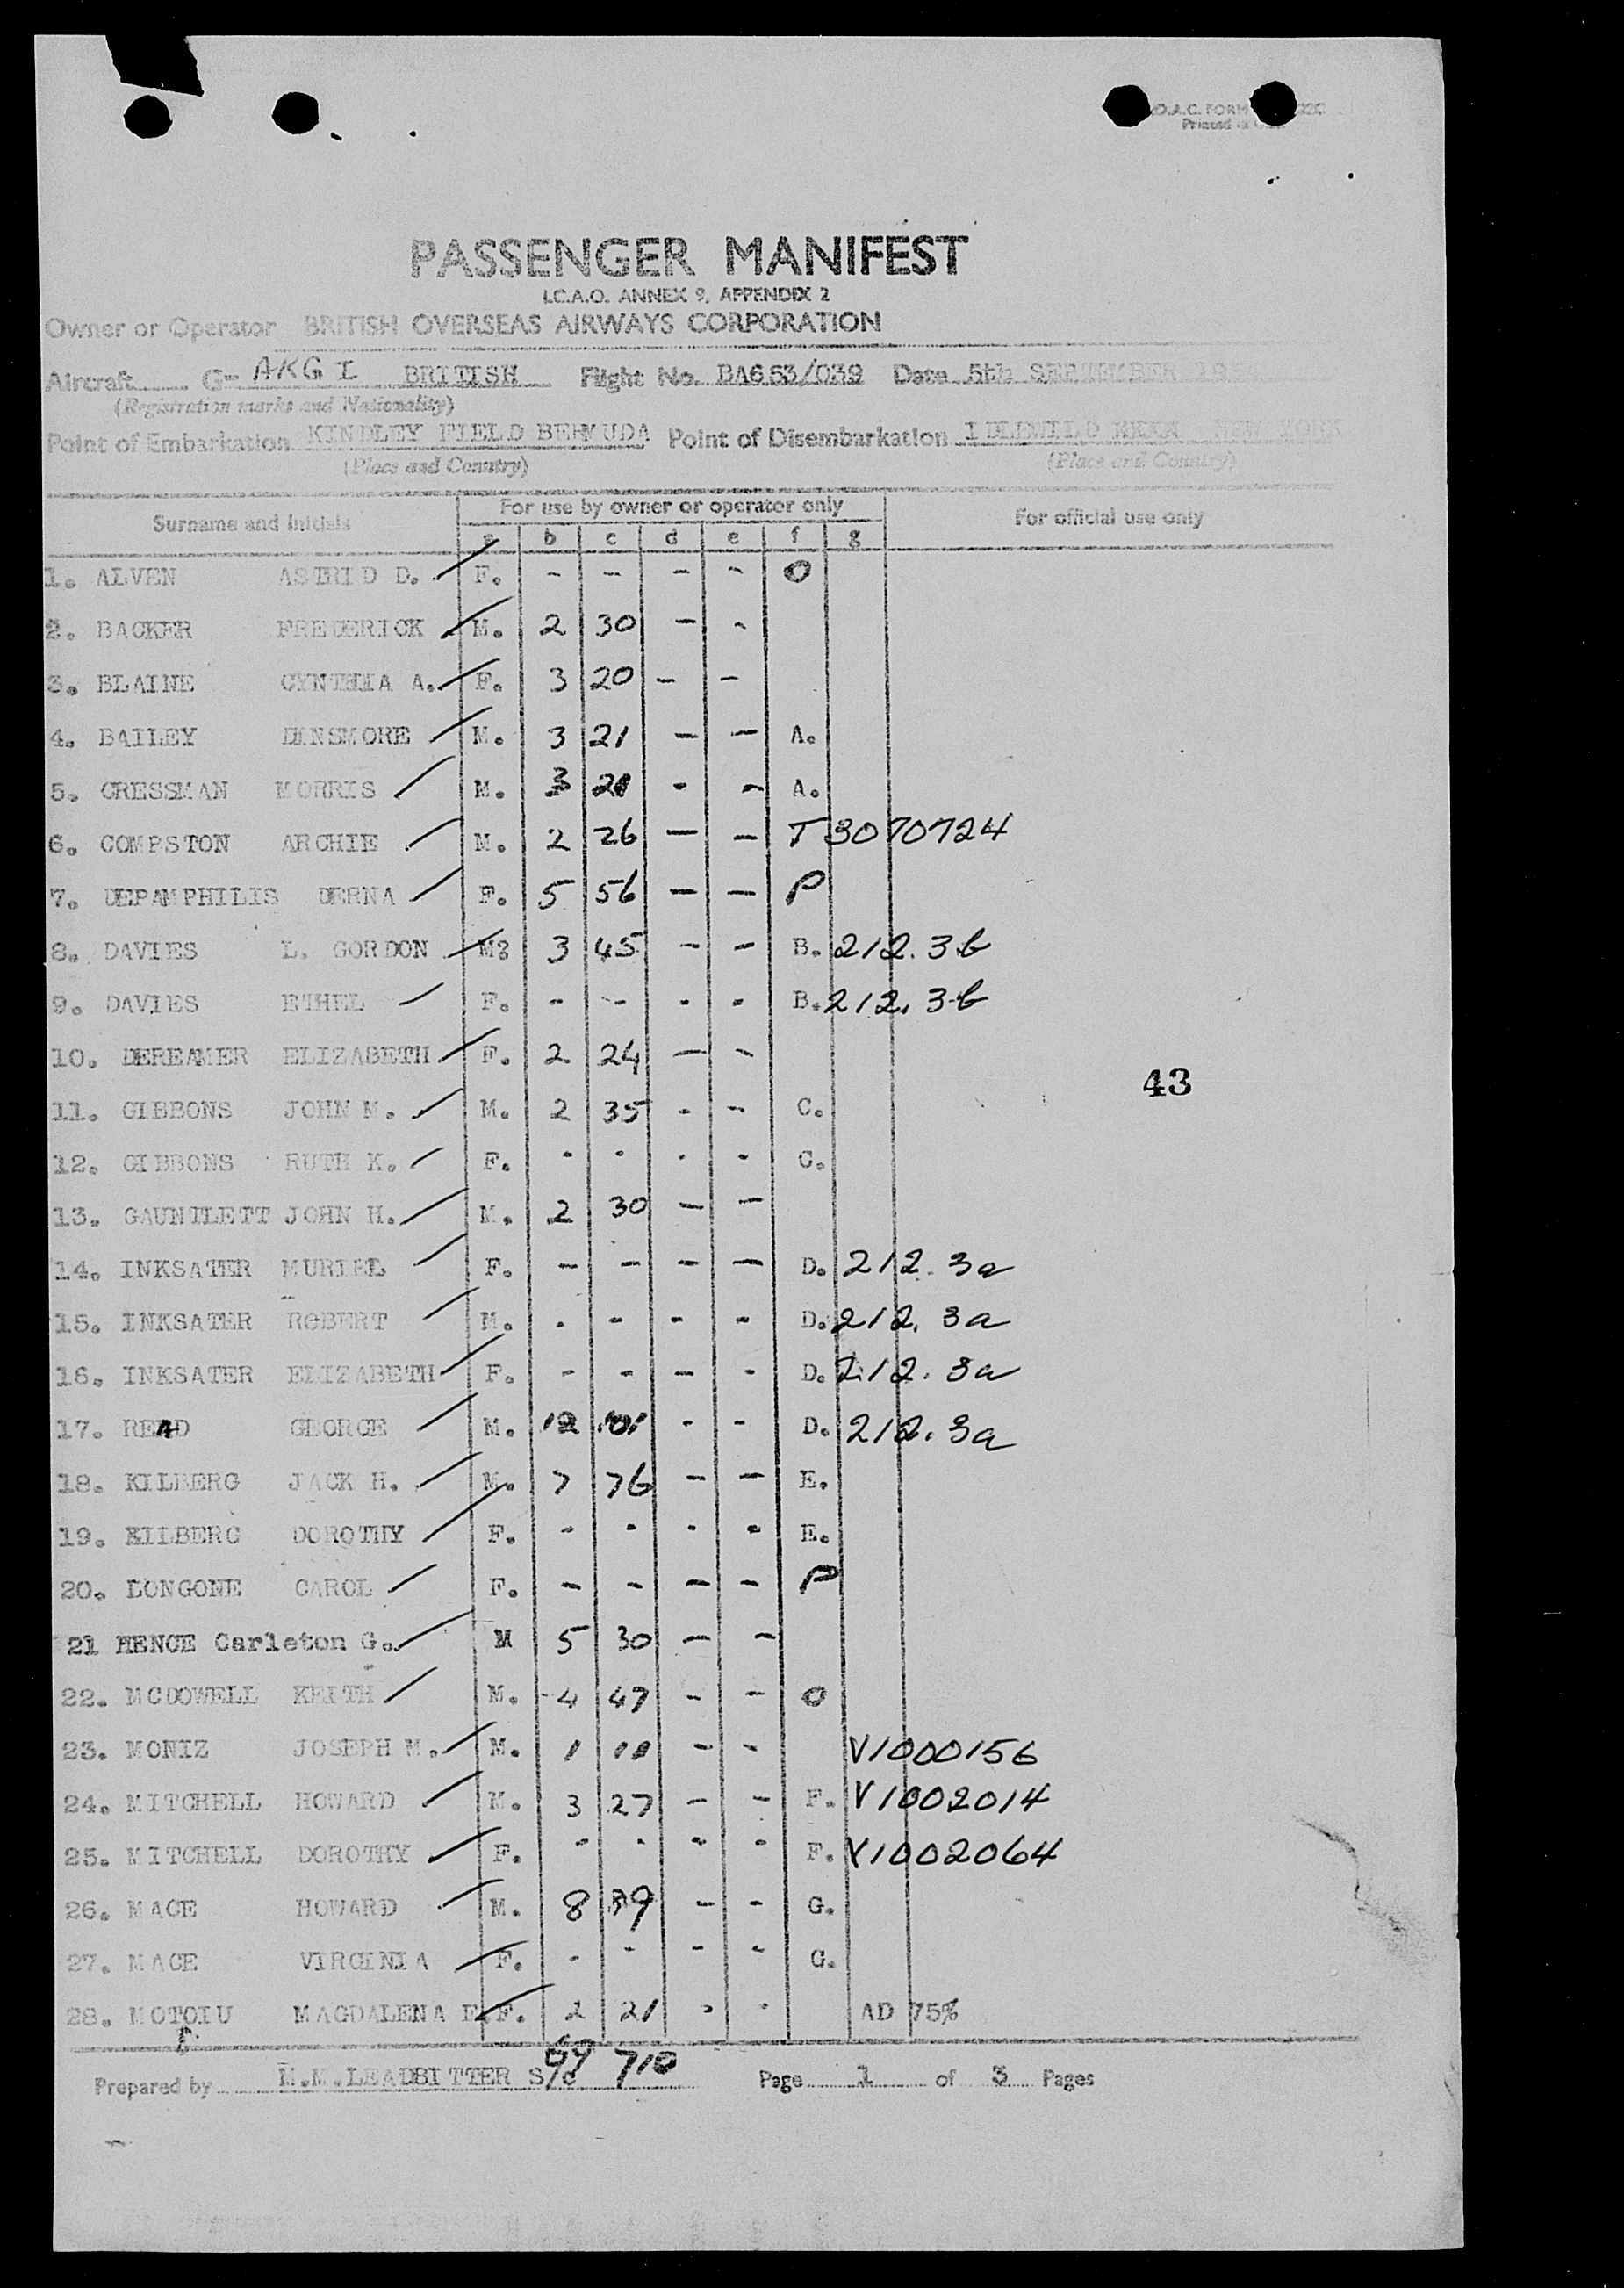 O.A.C. FORM
Printed in
PASSENGER MANIFEST
I.C.A.O. ANNEX 9, APPENDIX 2
Owner or Operator BRITISH OVERSEAS AIRWAYS CORPORATION
Aircraft G- AKGI BRITISH Flight No. BA663/039 Date 5th SEPTEMBER 19
(Registration marks and Nationality)
Point of Embarkation KINDLEY FIELD BERMUDA Point of Disembarkation IDLEWILD NEW YORK
(Place and Country) (Place and Country)
Surname and Initials For use by owner or operator only For official use only
a b c d e f g
1. ALVEN ASTRID D. F. - - - - O
2. BACKER FREDERICK M. 2 30 - -
3. BLAINE CYNTHIA A. F. 3 20 - -
4. BAILEY DINSMORE M. 3 21 - - A.
5. CRESSMAN MORRIS M. 3 - - A.
6. COMPSTON ARCHIE M. 2 26 - - T 3070724
7. DEPAMPHILIS DERNA F. 5 56 - - P
8. DAVIES L. GORDON M? 3 45 - - B. 212.3b
9. DAVIES ETHEL F. - - - - B. 212.3-b
10. DEREAMER ELIZABETH F. 2 24 - -
43
11. GIBBONS JOHN M. M. 2 35 - - C.
12. GIBBONS RUTH K. F. - - - - C.
13. GAUNTLETT JOHN H. M. 2 30 - -
14. INKSATER MURIEL F. - - - - D. 212.3a
15. INKSATER ROBERT M. - - - - D. 212.3a
16. INKSATER ELIZABETH F. - - - - D. 212.3a
17. READ GEORGE M. 12 101 - - D. 212.3a
18. KILBERG JACK H. M. 7 76 - - E.
19. KILBERG DOROTHY F. - - - - E.
20. LONGONE CAROL F. - - - - P
21 HENCE Carleton G. M 5 30 - -
22. MCDOWELL KEITH M. 4 47 - - O
23. MONIZ JOSEPH M. M. 1 - - V1000156
24. MITCHELL HOWARD M. 3 27 - - F. V1002014
25. MITCHELL DOROTHY F. - - - - F. V1002064
26. MACE HOWARD M. 8 39 - - G.
27. MACE VIRGINIA F. - - - - G.
28. MOTOIU MAGDALENA E. F. 2 21 - - AD 75%
710
Prepared by M.M.LEADBITTER S/C Page 1 of 3 Pages